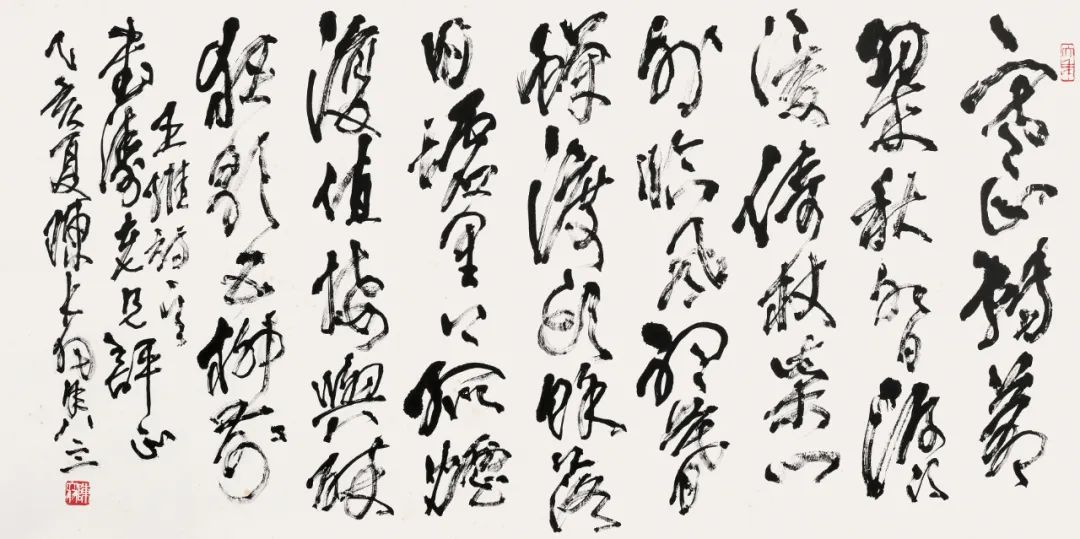 寒山轉蒼
翠秋水日潺
湲倚杖柴門
外臨風聽暮
蟬渡頭餘落
日墟里上孤煙
復值接輿醉
狂歌五柳前
王維詩一首
書濤老兄評正
乙亥夏陳大羽年八三